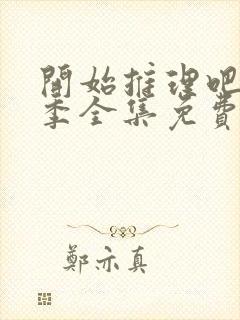 開始推理吧
季全集免費
鄭亦真